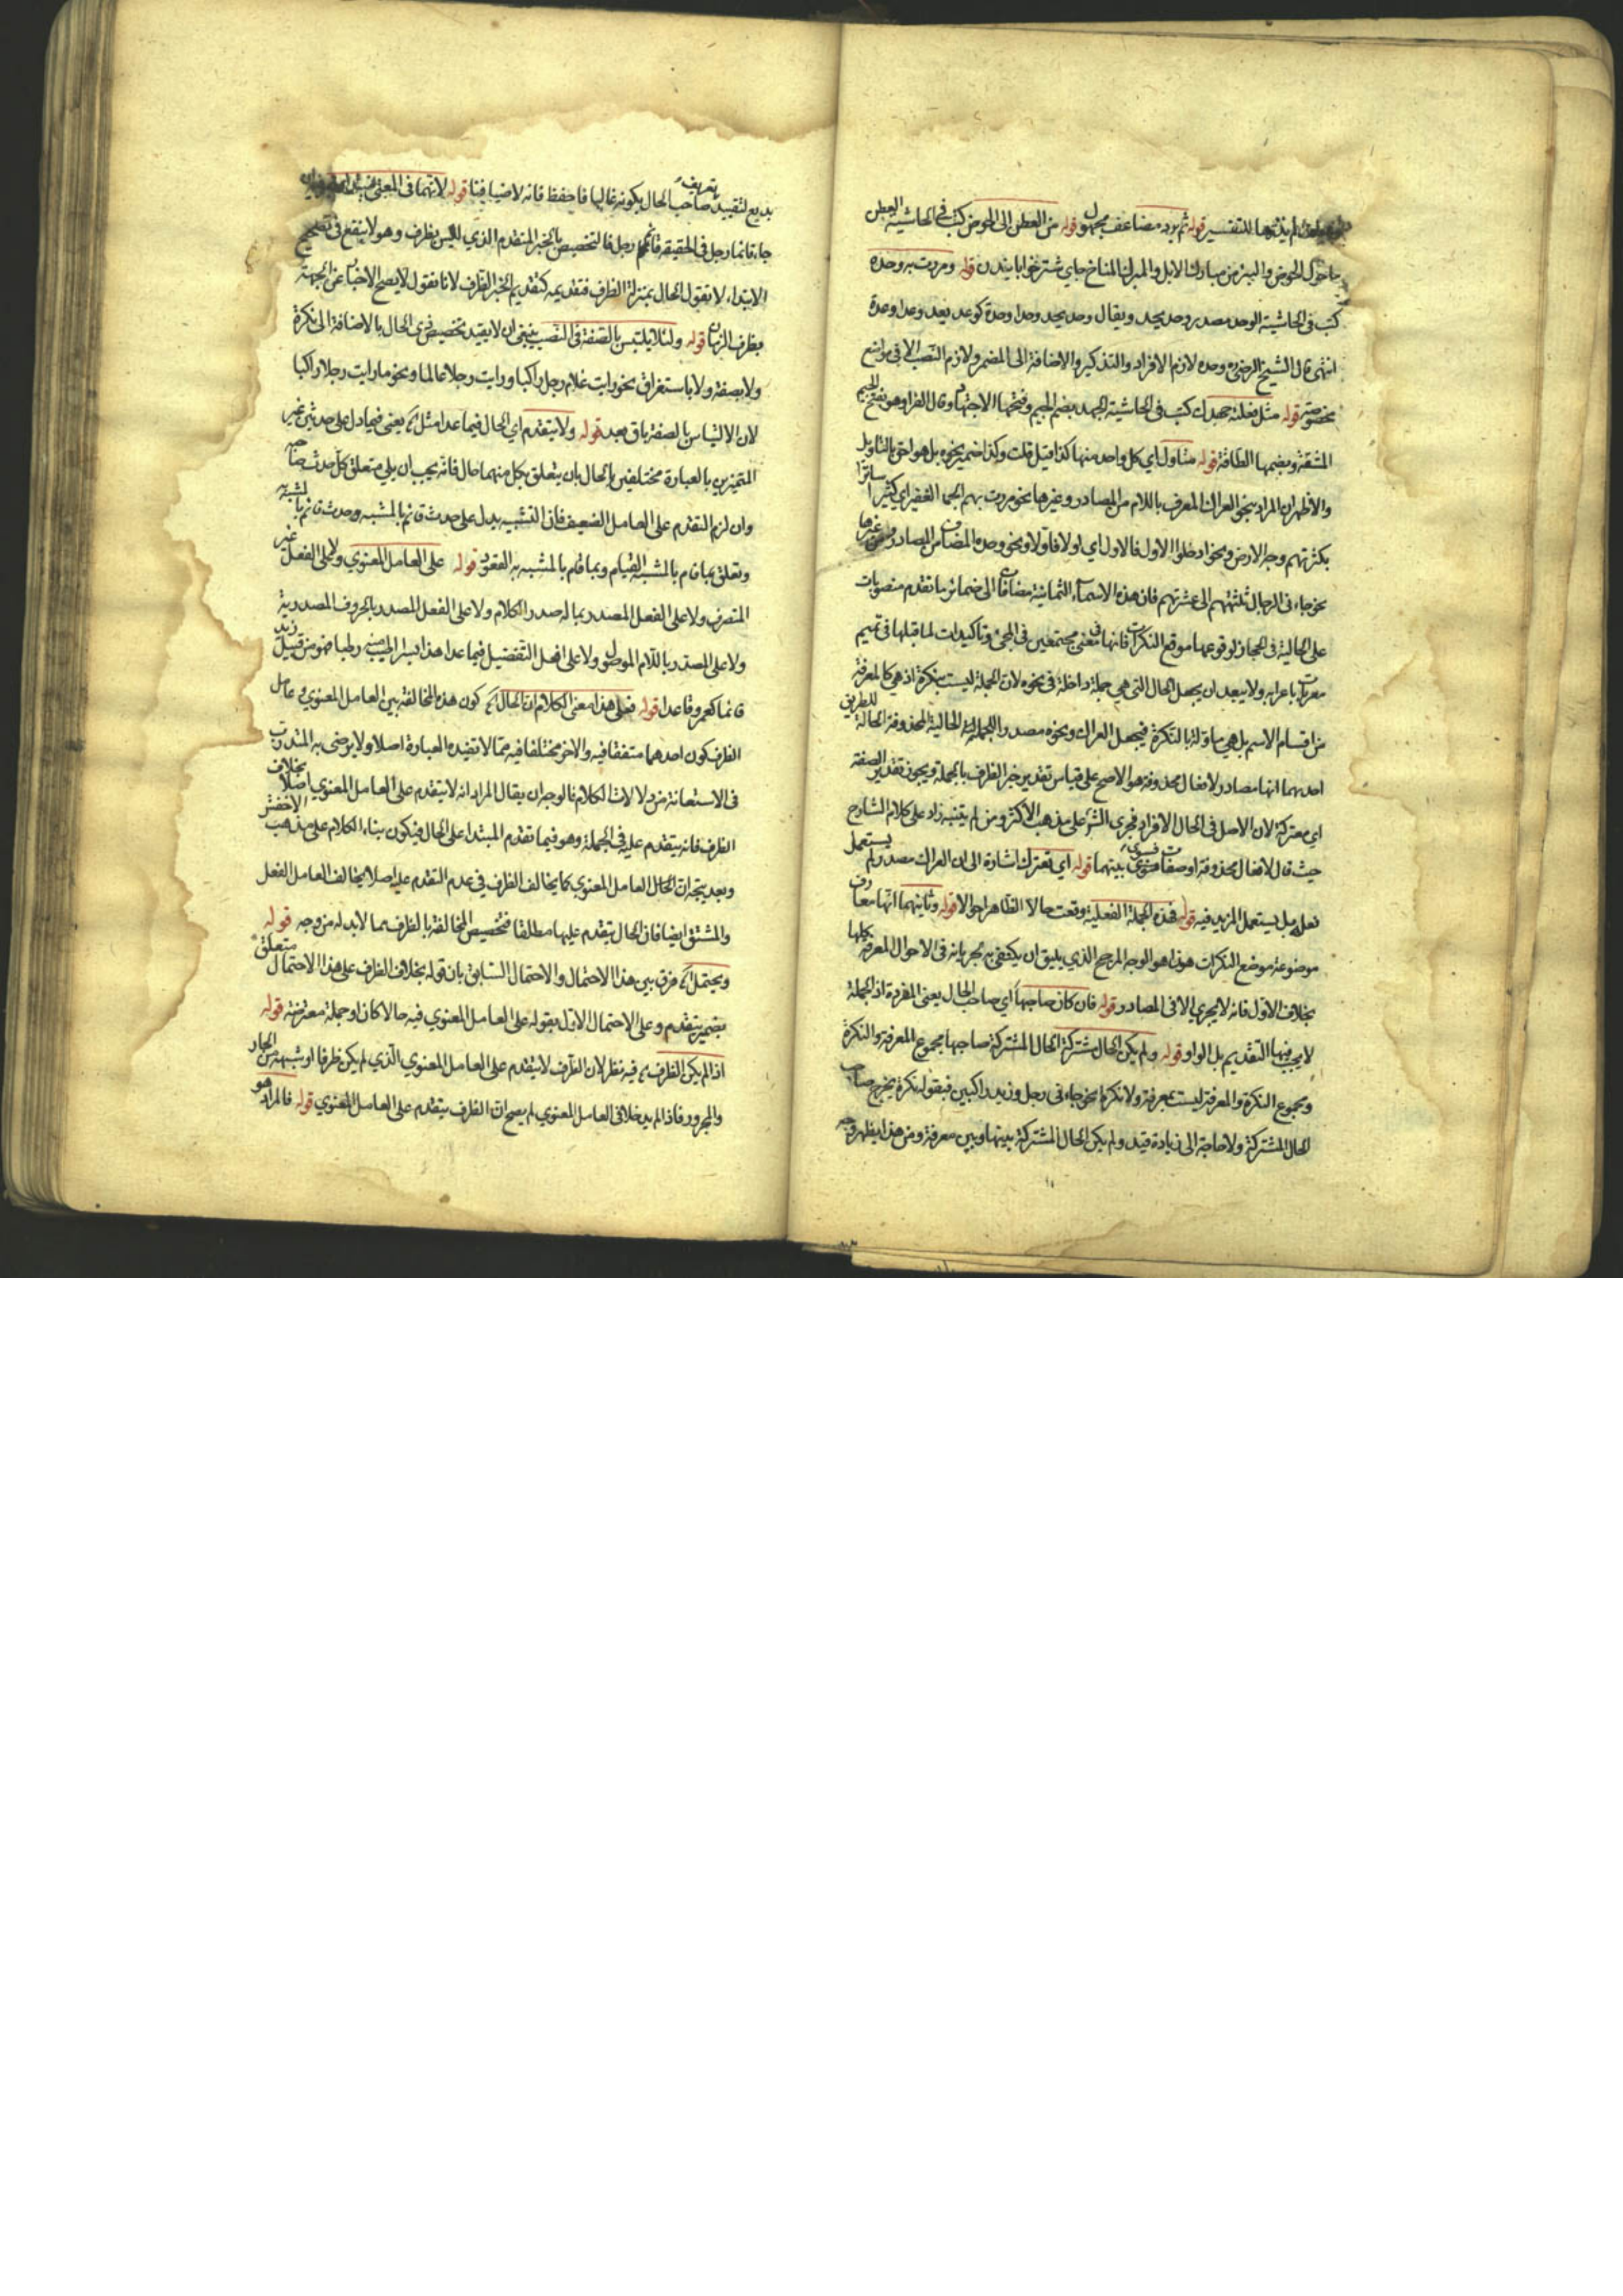 لم يذكرها للتفسير قوله ثم يرد مضاعف مجهول قوله من العطن الى الحوض كتب في الحاشية العطن
ما حول الحوض والبئر من مبارك الابل والمبرك المناخ جاي شتر خوابانيدن قوله ومررت به وحده
كتب في الحاشية الوحد مصدر وحد يحد ويقال وحد يحد وحدا وحدة كوعد يعد وعدا وعدة
انتهى قال الشيخ الرضي ره وحده لازم الافراد والتذكير والاضافة الى المضمر ولازم النصب الا في مواضع
مخصوصة قوله مثل فعلته جهدك كتب في الحاشية الجهد بضم الجيم وفتحها الاجتهاد وقال الفرا وهو بفتح الجيم
المشقة وبضمها الطاقة قوله متاول اي كل واحد منها كذا قيل قلت وكذا ضمير نحوه بل هو احق بالتاويل
والاظهر ان المراد بنحو العراك المعرف باللام من المصادر وغيرها نحو مررت بهم الجما الغفير اي كثيرا ساترا
بكثرتهم وجه الارض ونحو ادخلوا الاول فالاول اي اولا فاولا ونحو وحده المضاف من المصادر ومن غيرها
نحو جاءني الرجال ثلثتهم الى عشرتهم فان هذه الاسماء الثمانية مضافا الى ضمائر ما تقدم منصوبات
على الحالية في الحجاز لوقوعها موقع النكرات فانها في معنى مجتمعين في المجئ وتاكيدات لما قبلها في تميم
معربات باعرابه ولا يبعد ان يجعل الحال التي هي جملة داخلة في نحوه لان الجملة ليست بنكرة اذ هي كالمعرفة
من اقسام الاسم بل هي ماولة بالنكرة فيجعل العراك ونحوه مصدر الجملة الحالية المحذوفة احالة للطريق
احدهما انها مصادر لافعال محذوفة هو الاصح على قياس تقدير خبر الظرف بالجملة ويجوز تقدير الصفة
اي معتركة لان الاصل في الحال الافراد فجرى الش على مذهب الاكثر ومن لم يتنبه زاد على كلام الشارح
حيث قال لافعال محذوفة او صفات فسوى بينهما قوله اي تعترك اشارة الى ان العراك مصدر لم يستعمل
فعله بل يستعمل المزيد فيه قوله فهذه الجملة الفعلية وقعت حالا الظاهر احوالا قوله وثانيهما انها معارف
موضوعة موضع النكرات هذا هو الوجه المرجح الذي يليق ان يكتفى به لجريانه في الاحوال المعرفة كلها
بخلاف الاول فانه لا يجري الا في المصادر قوله فان كان صاحبها اي صاحب الحال يعنى المفردة اذ الجملة
لا يجب فيها التقديم بل الواو قوله ولم يكن الحال مشتركة الحال المشتركة صاحبها مجموع المعرفة والنكرة
ومجموع النكرة والمعرفة ليست بمعرفة ولا نكرة نحو جاءني رجل وزيد راكبين فبقوله نكرة يخرج صاحب
الحال المشتركة ولا حاجة الى زيادة قيد ولم يكن الحال مشتركة بينها وبين معرفة ومن هذا يظهر وجه
بديع لتقييد تعريف صاحب الحال بكونه غالبا فاحفظ فانه لاضيافينا قوله لانهما في المعنى مبتدا
جاء قائما رجل في الحقيقة قائم رجل فالتخصيص بالخبر المتقدم الذي ليس بظرف وهو لا ينفع في تصحيح
الابتداء لا تقول الحال بمنزلة الظرف فتقديمه كتقديم الخبر الظرف لانا نقول لا يصح الاخبار عن الجثة
بظرف الزمان قوله ولئلا يلتبس بالصفة في النصب ينبغي ان لا يقيد تخصيص ذي الحال بالاضافة الى نكرة
ولا بصفة ولا باستغراق نحو رايت غلام رجل راكبا ورايت رجلا عالما ونحو ما رايت رجلا راكبا
لان الالتباس بالصفة باق بعد قوله ولا يتقدم اي الحال فيما عدا مثل الخ يعني فيما دل على حدثين غير
المتميزين بالعبارة مختلفين بالحال بان يتعلق بكل منهما حال فانه يجب ان يلي متعلق كل حدث صاحبه
وان لزم التقدم على العامل الضعيف فان التشبيه يدل على حدث قائم بالمشبه وحدث قائم بالمشبه به
وتعلق بما قام بالمشبه القيام وبما قام بالمشبه به القعود قوله على العامل المعنوي ولا على الفعل غير
المتصرف ولا على الفعل المصدر بما له صدر الكلام ولا على الفعل المصدر بالحروف المصدرية
ولا على المصدر باللام الموصول ولا على افعل التفضيل فيما عدا هذا بسرا اطيب منه رطبا ضمو من قبيل زيد
قائما كعمرو قاعدا قوله فعلى هذا معنى الكلام ان الحال الخ كون هذه المخالفة بين العامل المعنوي وعامل
الظرف كون احدهما متفقا فيه والاخر مختلفا فيه مما لا تفيده العبارة اصلا ولا يرضى به المتدرب
في الاستعانة من دلالات الكلام فالوجه ان يقال المراد انه لا يتقدم على العامل المعنوي اصلا بخلاف
الظرف فانه يتقدم عليه في الجملة وهو فيما تقدم المبتدا على الحال فيكون بناء الكلام على مذهب الاخفش
وبعد يتجه ان الحال العامل المعنوي كما يخالف الظرف في عدم التقدم عليه اصلا يخالف العامل الفعل
والمشتق ايضا فان الحال يتقدم عليها مطلقا فتخصيص المخالفة بالظرف مما لا بد له من وجه قوله
ويحتمل الخ فرق بين هذا الاحتمال والاحتمال السابق بان قوله بخلاف الظرف على هذا الاحتمال متعلق
بضمير يتقدم وعلى الاحتمال الاول بقوله على العامل المعنوي فيه حالا كان او جملة معترضة قوله
اذا لم يكن الظرف الخ فيه نظر لان الظرف لا يتقدم على العامل المعنوي الذي لم يكن ظرفا او شبهه من الجار
والمجرور فاذا لم يدخلا في العامل المعنوي لم يصح ان الظرف يتقدم على العامل المعنوي قوله فالمراد هو